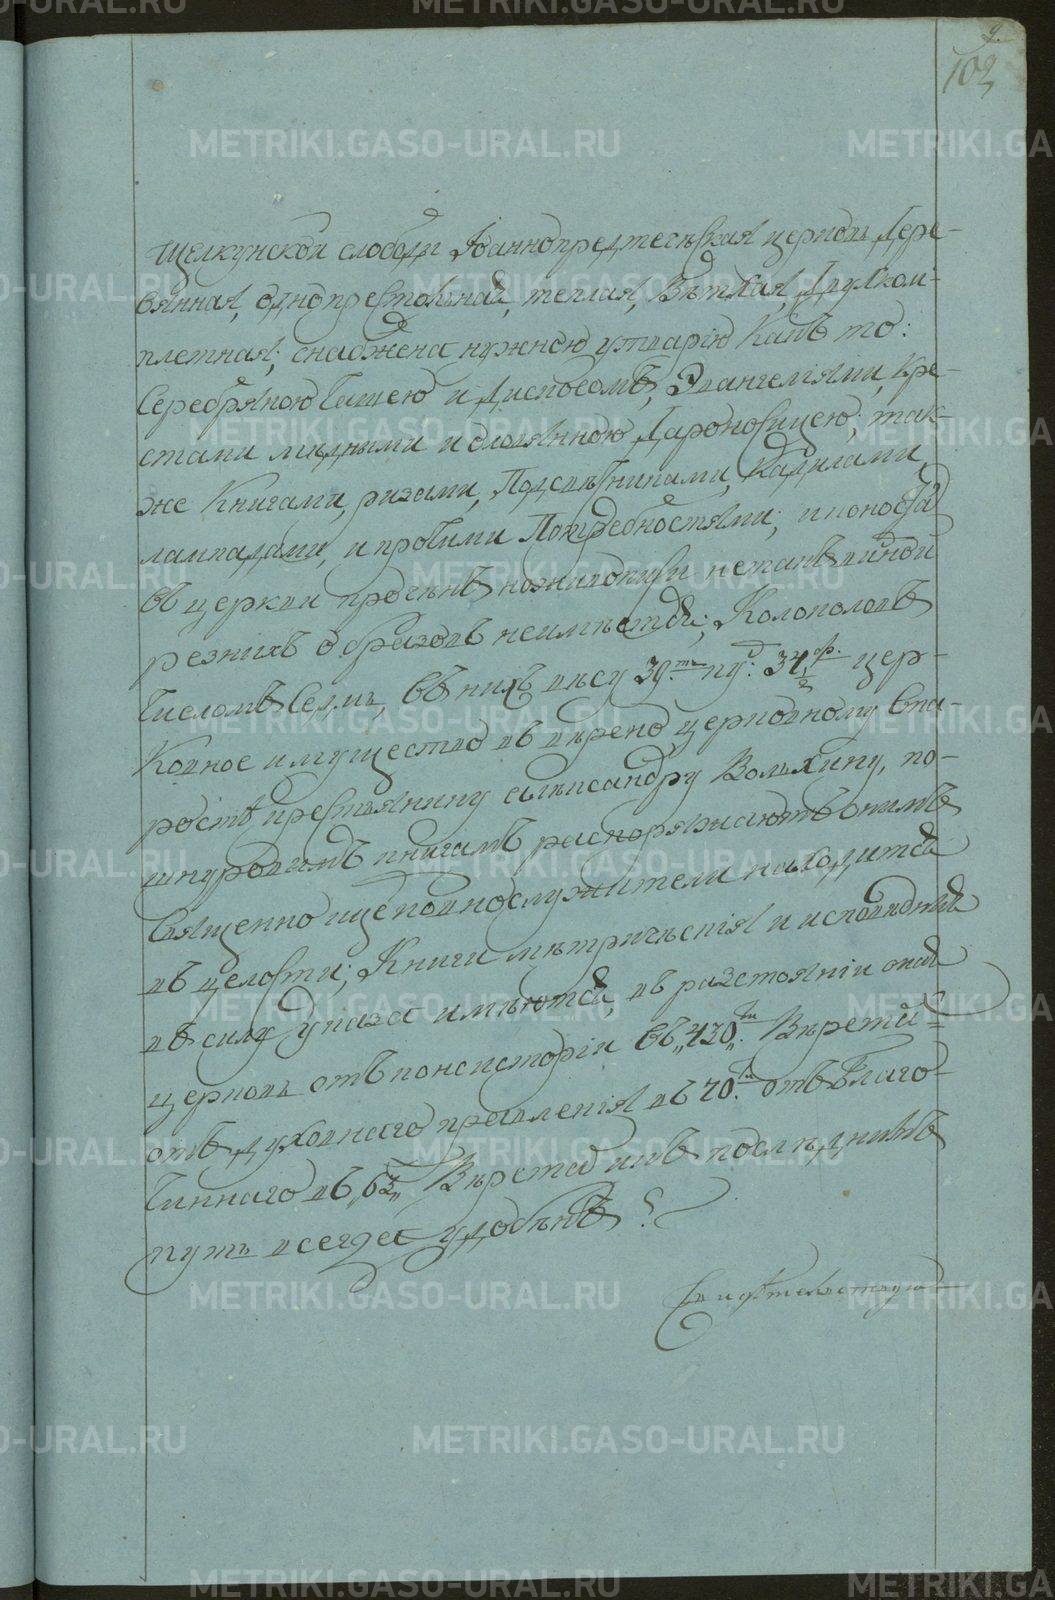 103
Щелкунской слободы Іоаннопредтеческая церковь дере-
вянная, однопрестольная, теплая, ветхая, двухком-
плетная; снабжена нужною утварію какъ то:
Серебряною чашею и дискосомъ, Эвангеліями, кре-
стами медными и оловянною дароносицею; так-
же книгами, ризами, подсвѣтниками, кадилами,
лампадами, и протчими потребностями; иконоста
въ церкви
резнихъ образовъ неимеется; Колоколовъ
числомъ седмь, въ нихъ весу 39.ть пу: 34½ ф. цер-
ковное имущество вверено церковному ста-
росте крестьянину Александру Волыхину, по-
шнуровымъ книгамъ распоряжаютъ онымъ
Священно ицерковнослужители находится
въ целости; Книги метрическія и исповедния
въ силу указа имеются, въ разстояніи оная
церковь отъ консисторіи въ "430." верстъ
отъ духовнаго правленія въ 70. отъ благо-
чиннаго въ "63" верстах къ последнимъ
путь всегда удобенъ
Свидетельствую
METRIKI.GASO-URAL.RU